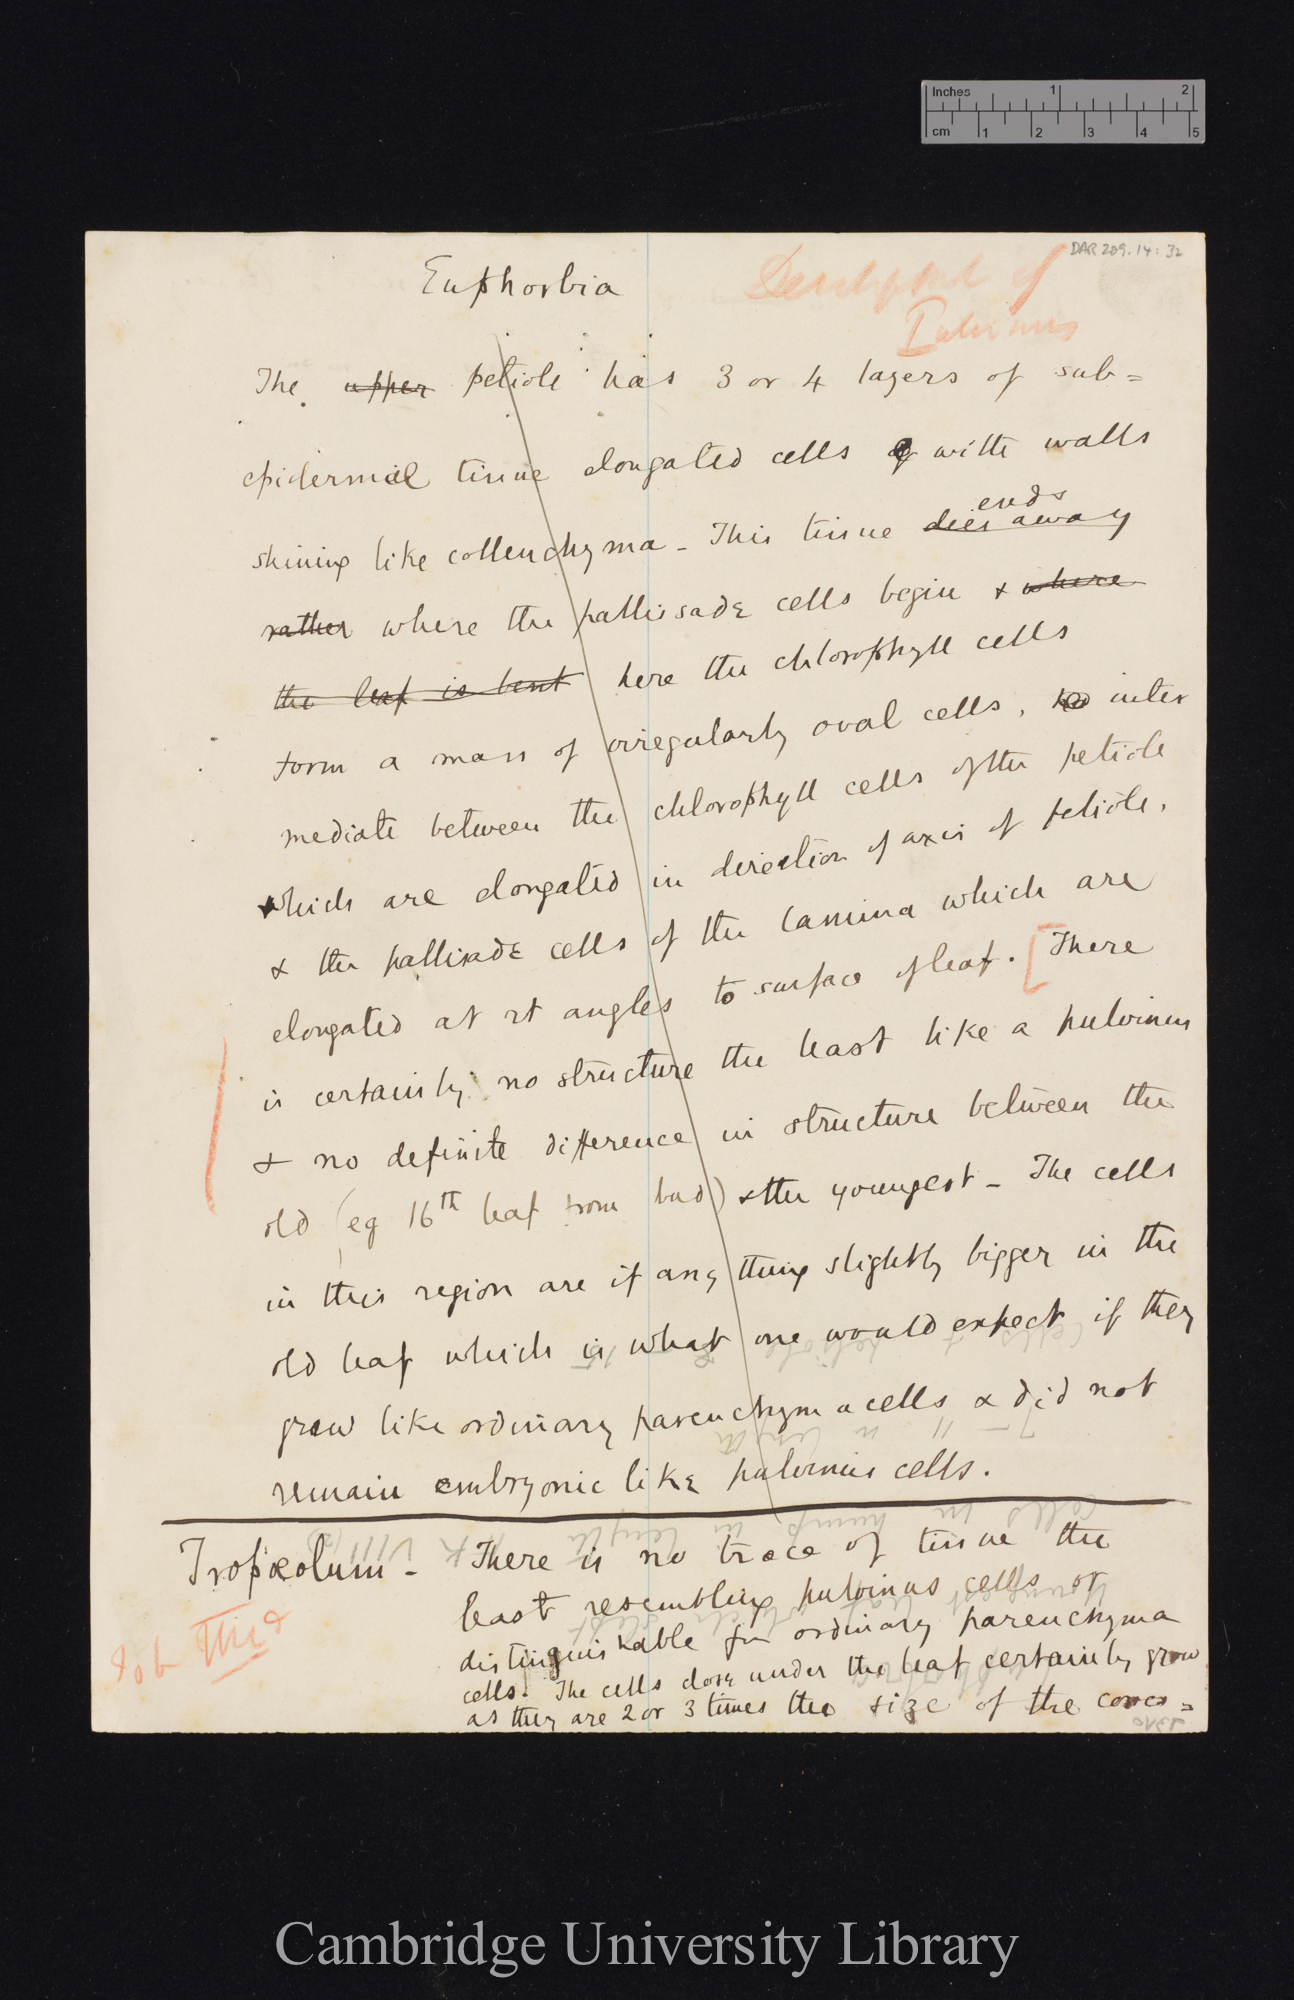 Inches 1 2
cm 1 2 3 4 5
DAR 209.14: 32
Euphorbia
of
Pulvinus
The upper petiole has 3 or 4 layers of sub=
epidermal tissue elongated cells with walls
ends
shining like collenchyma - This tissue dies away
rather where the pallisade cells begin & where
the leaf is bent here the chlorophyll cells
form a mass of irregularly oval cells, inter
mediate between the chlorophyll cells of the petiole
which are elongated in direction of axis of petiole,
& the pallisade cells of the lamina which are
elongated at rt angles to surface of leaf. [There
is certainly no structure the least like a pulvinus
& no definite difference in structure between the
old (eg 16th leaf from bud) & the youngest - The cells
in this region are if any thing slightly bigger in the
old leaf which is what one would expect if they
grew like ordinary parenchyma cells & did not
remain embryonic like pulvinus cells.
Tropæolum - There is no trace of tissue the
least resembling pulvinus cells or
distinguishable fm ordinary parenchyma
cells. The cells close under the leaf certainly grow
as they are 2 or 3 times the size of the corres=
Cambridge University Library